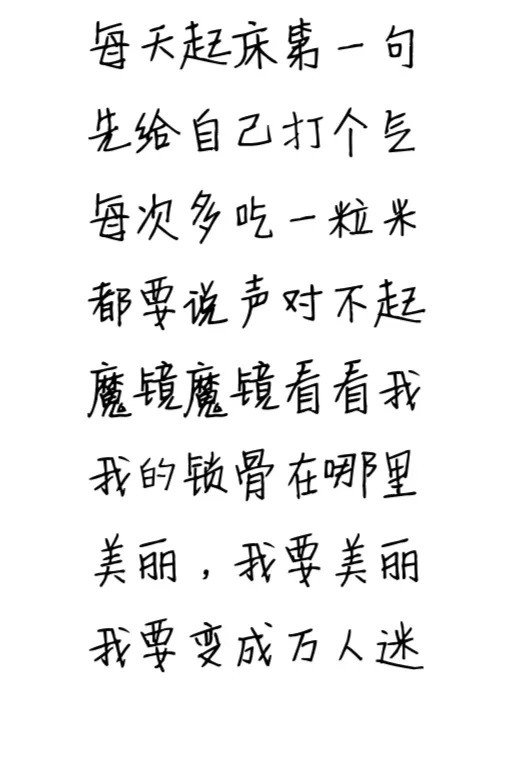 每天起床第一句
先给自己打个气
每次多吃一粒米
都要说声对不起
魔镜魔镜看看我
我的锁骨在哪里
美丽，我要美丽
我要变成万人迷